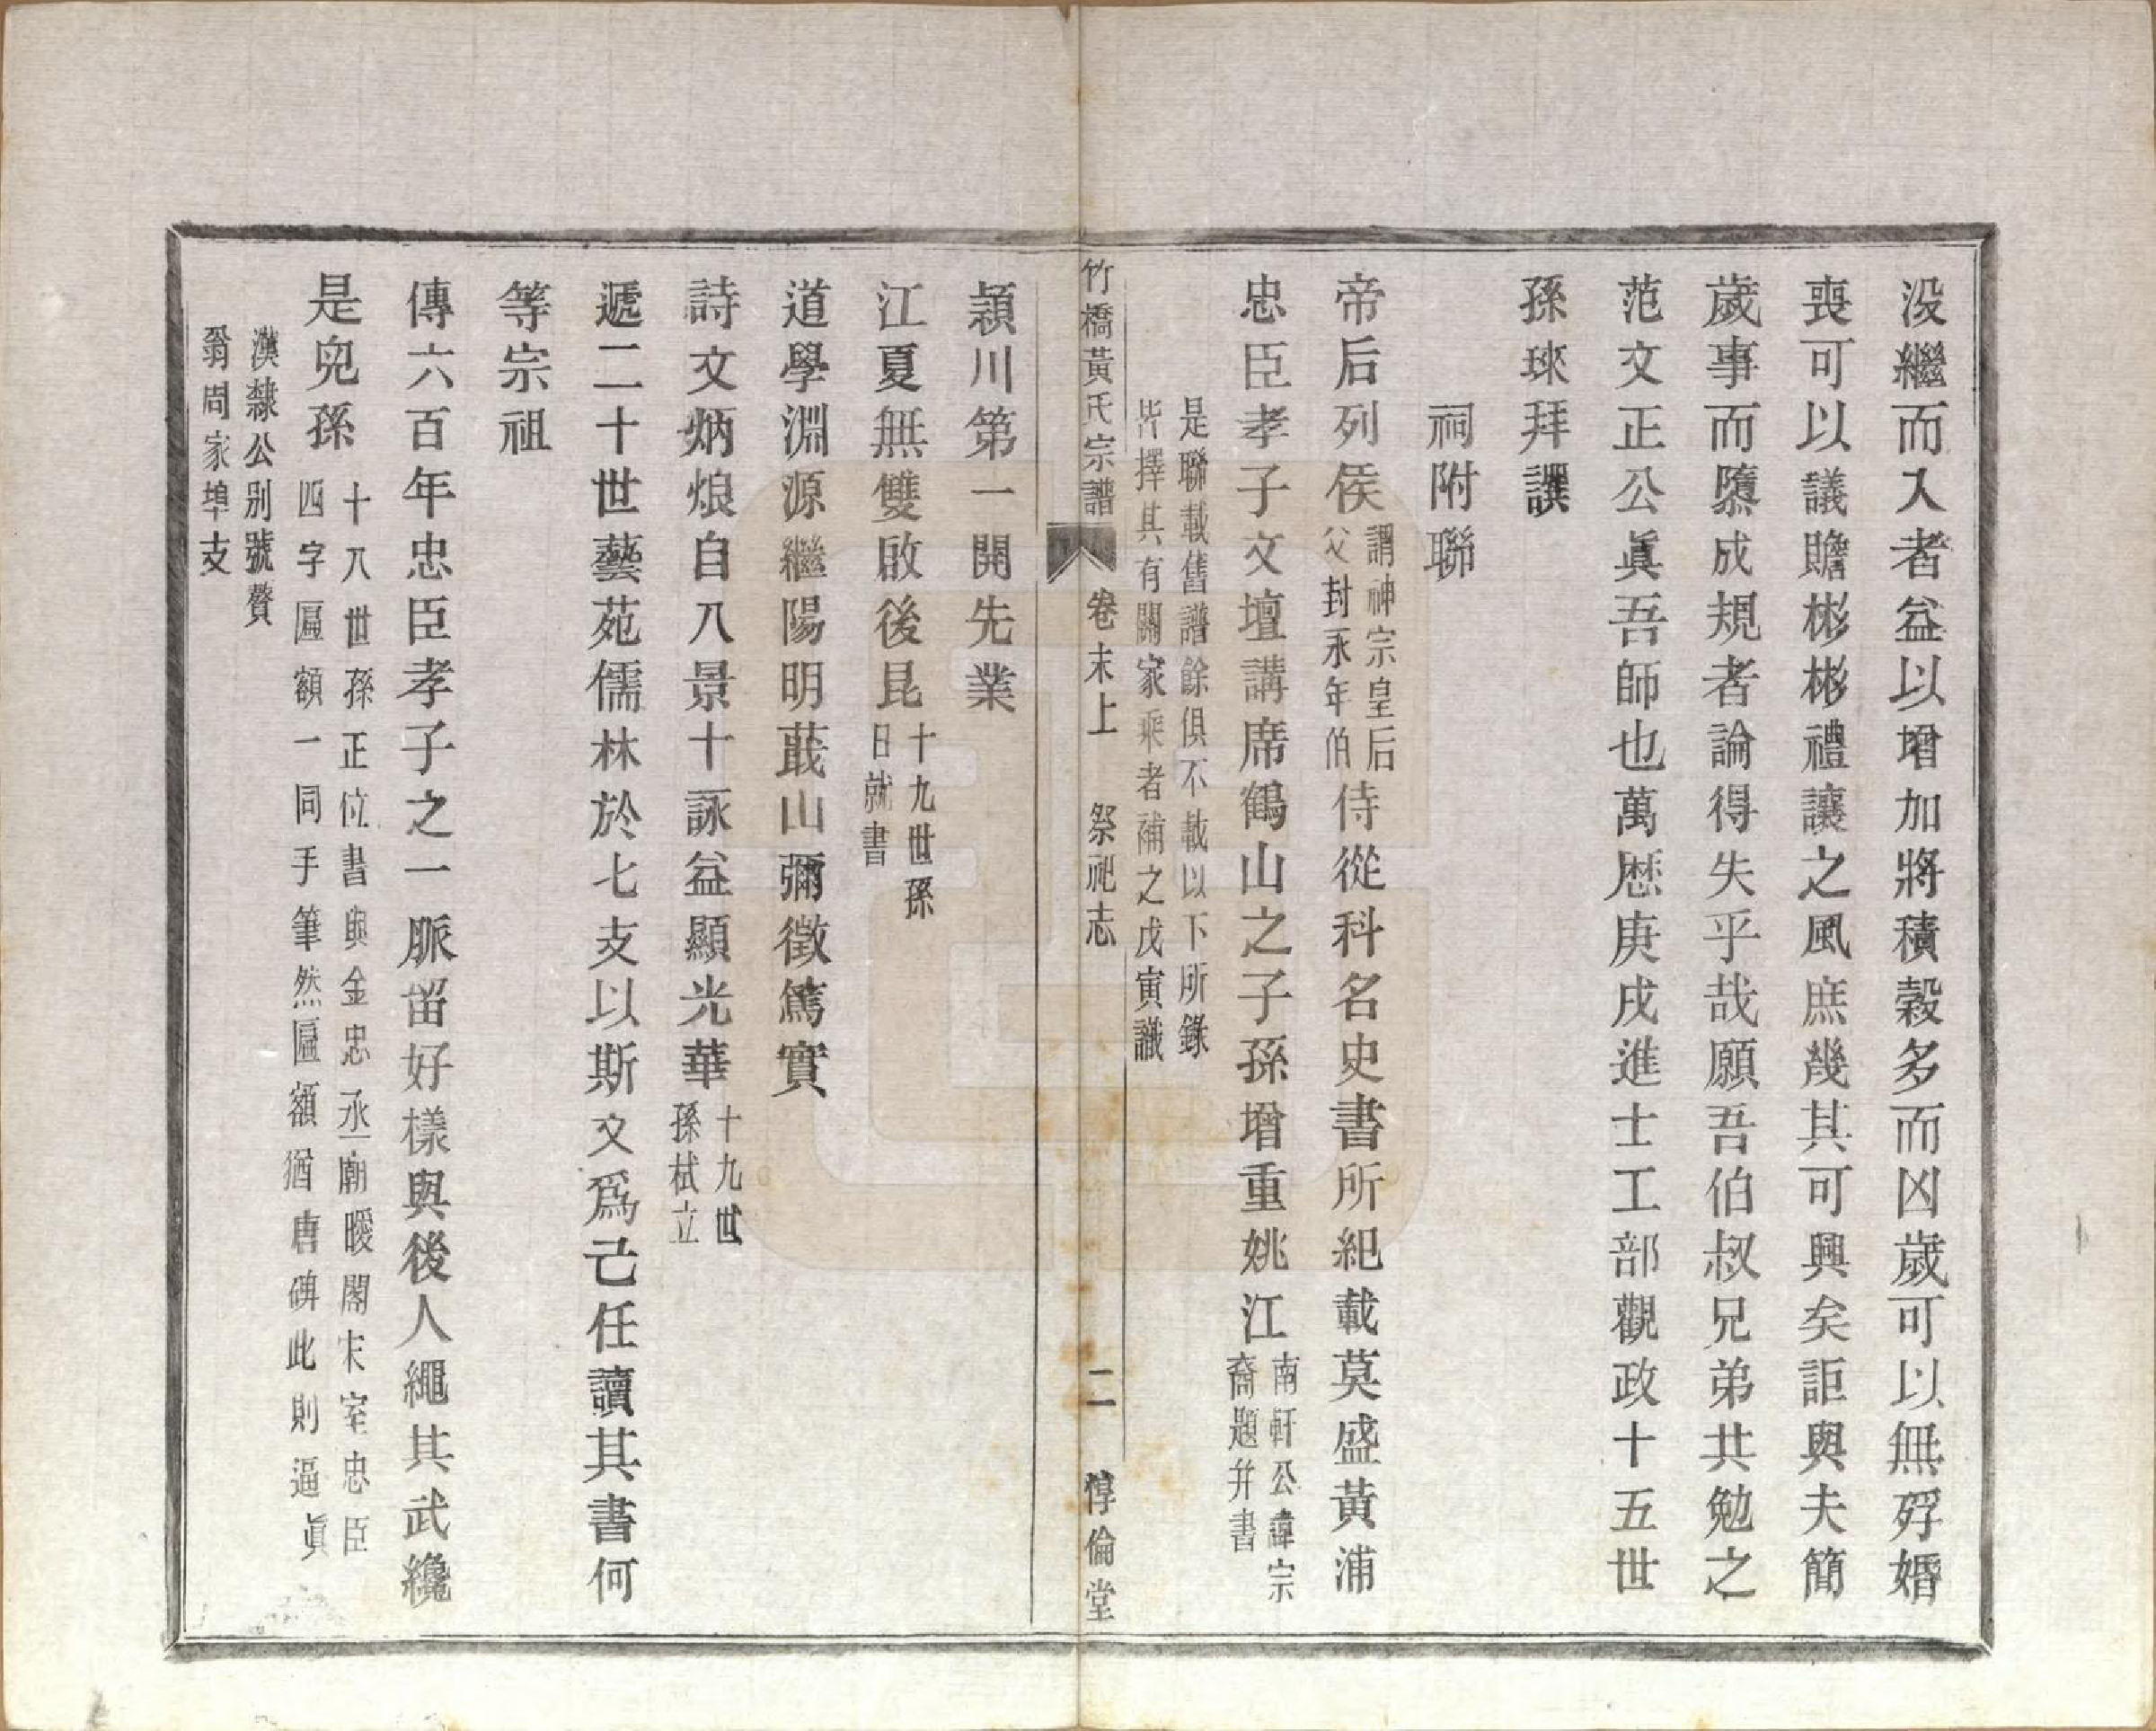 没繼而入者益以增加將積穀多而凶歲可以無殍婚
喪可以議贍彬彬禮讓之風庶幾其可興矣詎與夫簡
歲事而隳成規者論得失乎哉願吾伯叔兄弟共勉之
范文正公眞吾師也萬歷庚戌進士工部觀政十五世
孫琜拜譔
祠附聯
帝后列侯謂神宗皇后父封永年伯侍從科名史書所紀載莫盛黃浦
忠臣孝子文壇講席鶴山之子孫增重姚江南軒公諱宗裔題幷書
是聯載舊譜餘俱不載以下所錄
皆擇其有關家乘者補之戊寅識
竹橋黃氏宗譜 卷末上 祭祀志 二 惇倫堂
潁川第一開先業
江夏無雙啟後昆十九世孫日就書
道學淵源繼陽明蕺山彌徵篤實
詩文炳烺自八景十詠益顯光華十九世孫栻立
遞二十世藝苑儒林於七支以斯文爲己任讀其書何
等宗祖
傳六百年忠臣孝子之一脈留好樣與後人繩其武纔
是兒孫十八世孫正位書與金忠丞廟曖閣宋室忠臣四字匾額一同手筆然匾額猶唐碑此則逼眞
漢隸公別號贅
翁周家埠支